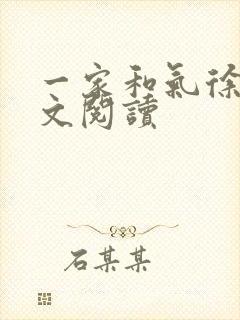 一家和氣徐
文閱讀
石某某